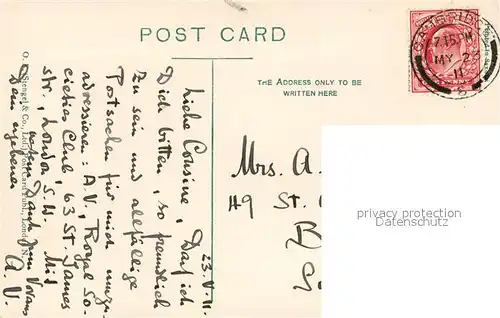 POST CARD
THE ADDRESS ONLY TO BE
WRITTEN HERE
CAMBRIDGE
7.15 PM
MY 2
11
23.V.11.
Liebe Cousine, Darf ich
Dich bitten, so freundlich
zu sein und allfällige
Postsachen für mich umzu-
adressieren: A.V., Royal So-
cieties Club, 63 St. James
str., London S.W. Mit
Dank zum Voraus
Dein ergebener
A.V.
Mrs. A.
49 St.
privacy protection
Datenschutz
O. Stengel & Co., Ltd., Post Card Publ., London